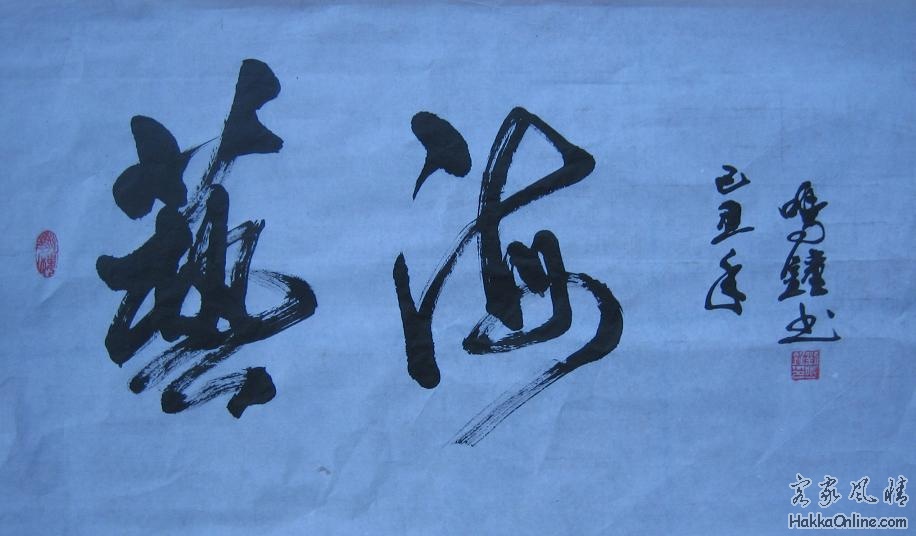 藝海
己丑年
鳴鐘书
客家風情
HakkaOnline.com